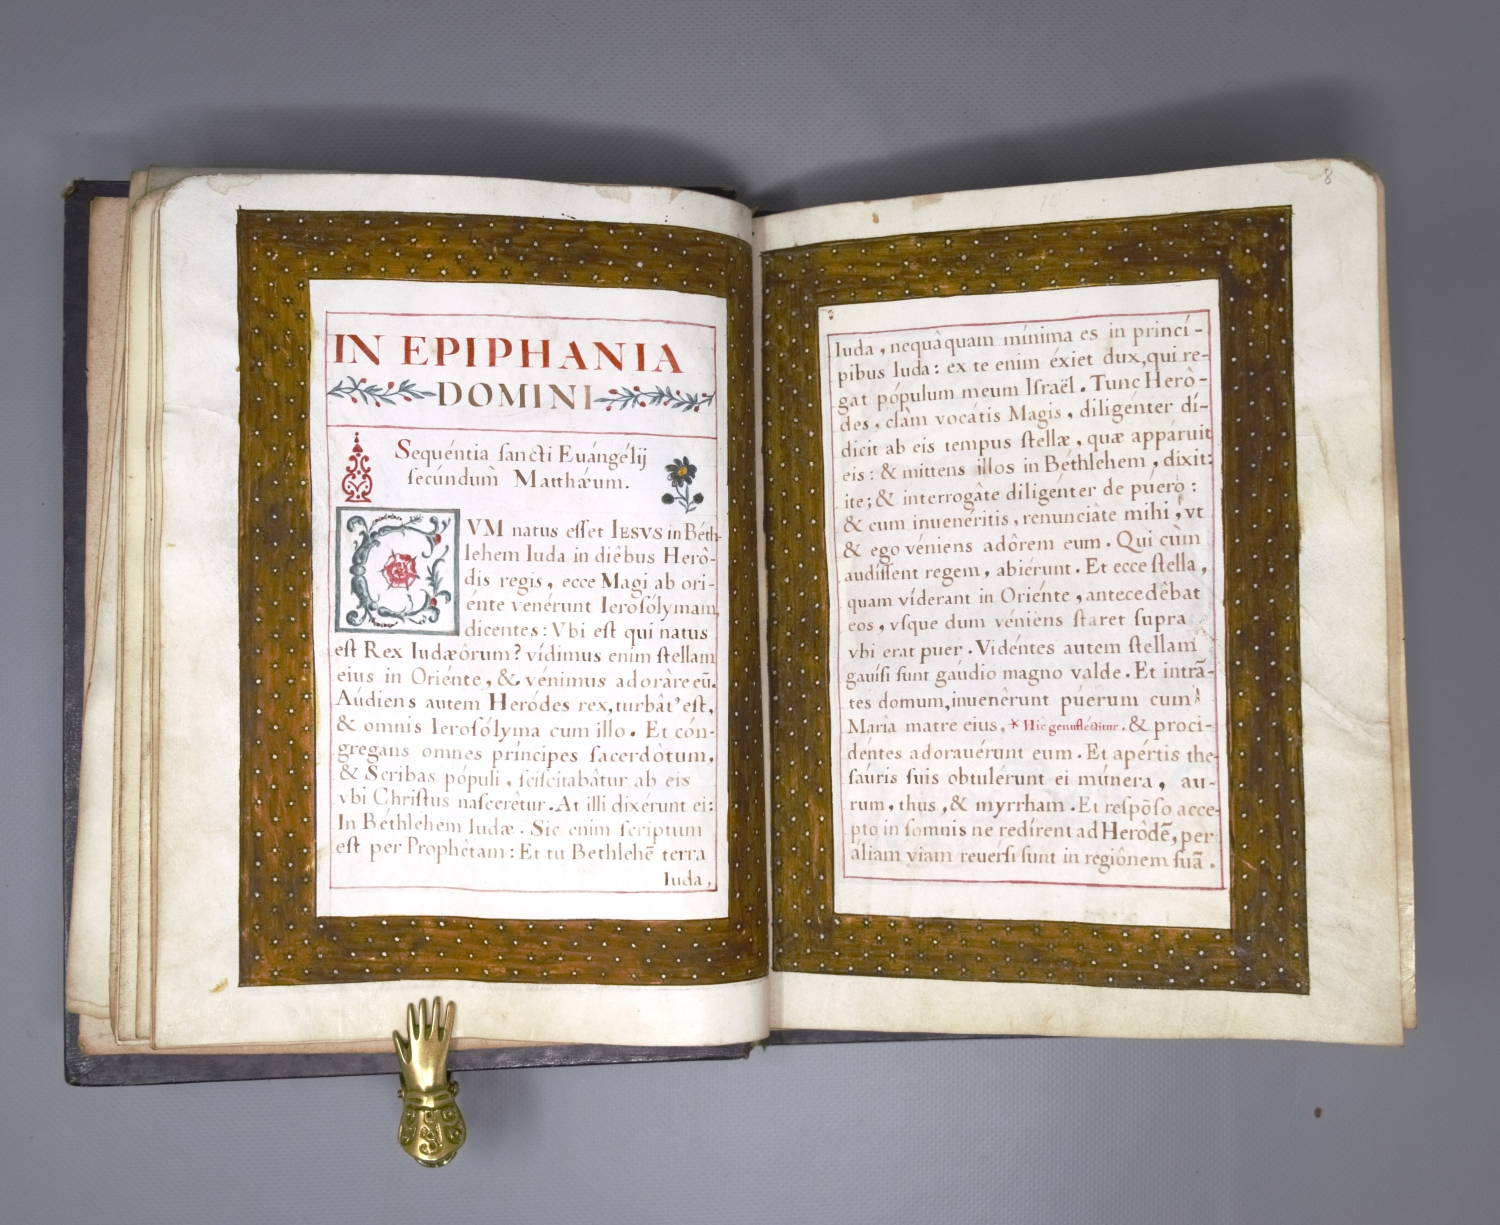 IN EPIPHANIA
DOMINI
Sequéntia ſancti Euángélij
ſecúndum̀ Matthǽum.
CVM natus eſſet IESVS in Béth-
lehem Iuda in diêbus Herô-
dis regis, ecce Magi ab ori-
énte venérunt Ieroſólymam,
dicentes: Vbi eſt qui natus
eſt Rex Iudæôrum? vídimus enim ſtellam
eius in Oriénte, & vénimus adorâre eū.
Audiens autem Heródes rex, turbât᾽ eſt,
& omnis Ieroſólyma cum illo. Et cón-
gregans omnes príncipes ſacerdôtum,
& Scribas pópuli, ſciſcitabâtur ab eis
vbi Chriſtus naſcerétur. At illi dixérunt ei:
In Béthlehem Iudæ. Sic enim ſcriptum
eſt per Prophêtam: Et tu Bethlehē terra
Iuda,
8
Iuda, nequàquam mínima es in princi-
pibus Iuda: ex te enim éxiet dux, qui re-
gat pópulum meum Iſraël. Tunc Herò-
des, clàm vocátis Magis, diligénter dí-
dicit ab eis tempus ſtellæ, quæ appáruit
eis: & mittens illos in Béthlehem, dixit:
ite; & interrogâte diligénter de púerò:
& cum inuenéritis, renunciâte mihi, vt
& ego véniens adôrem eum. Qui cùm
audíſſent regem, abiérunt. Et ecce ſtella,
quam víderant in Oriénte, antecedêbat
eos, vſque dum véniens ſtaret ſupra
vbi erat puer. Vidéntes autem ſtellam
gauíſi ſunt gaúdio magno valde. Et intrã-
tes domum, inuenêrunt púerum cum
Marìa matre eius, * Hic genuflectitur. & proci-
déntes adorauérunt eum. Et apértis the-
ſáuris ſuis obtulérunt ei múnera, au-
rum, thus, & myrrham. Et reſpōſo acce-
pto in ſomnis ne redírent ad Herôdē, per
áliam viam reuérſi ſunt in regiônem ſuā.